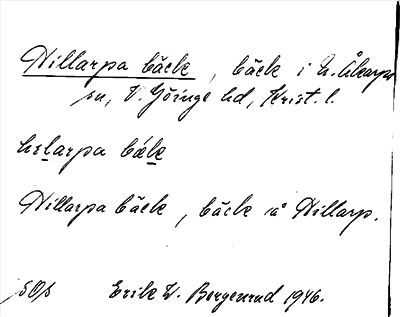 Hillarpa bäck, bäck i N. Åkarps
sn, V. Göinge hd, Krist. l.
hɪlarpa bɛ́k
Hillarpa bäck, bäck å Hillarp.
SOS Erik W. Bergenrud 1946.